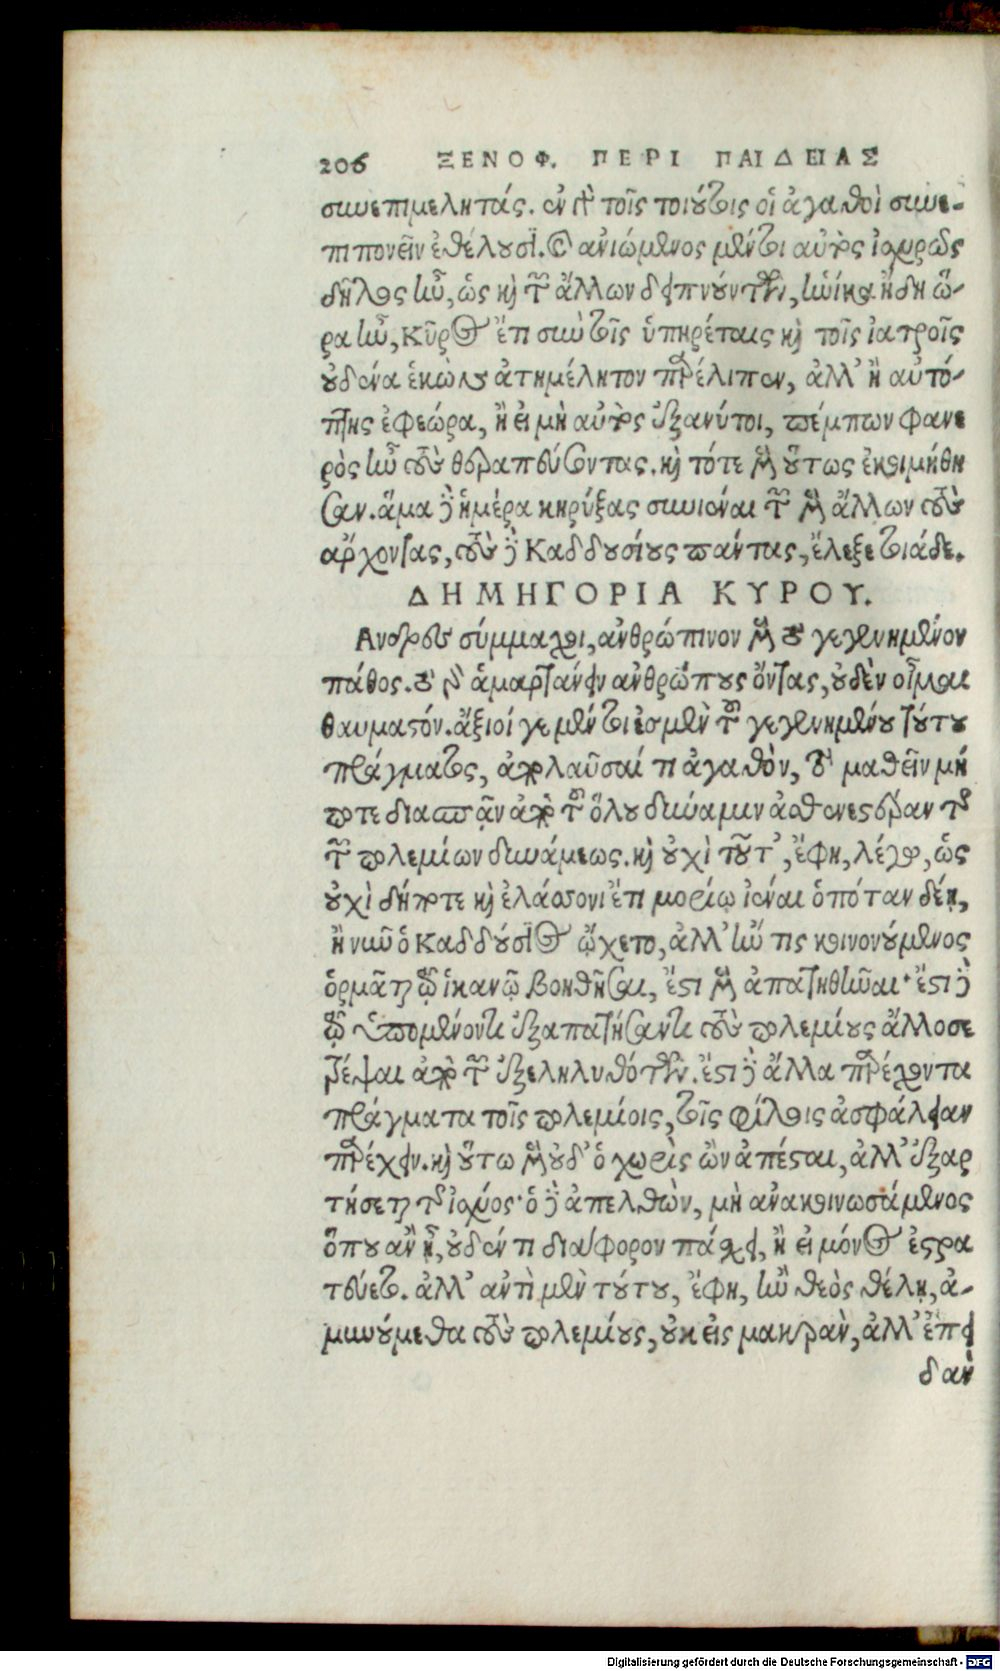 206 ΞΕΝΟΦ. ΠΕΡΙ ΠΑΙΔΕΙΑΣ
συνεπιμελητάς. ἐν γὰρ τοῖς τοιούτοις οἱ ἀγαθοὶ συνε-
πιπονεῖν ἐθέλουσι. καὶ ἀνιώμενος μέντοι αὐτὸς ἰσχυρῶς
δῆλος ἦν, ὡς καὶ τῶν ἄλλων δειπνούντων, ἡνίκα ἤδη ὥ-
ρα ἦν, Κῦρος ἔτι σὺν τοῖς ὑπηρέταις καὶ τοῖς ἰατροῖς
οὐδένα ἑκὼν ἀτημέλητον παρέλιπεν, ἀλλ' ἢ αὐτό-
πτης ἐφεώρα, ἢ εἰ μὴ αὐτὸς ἐξανύτοι, πέμπων φανε
ρὸς ἦν τοὺς θεραπεύσοντας. καὶ τότε μὲν οὕτως ἐκοιμήθη
σαν. ἅμα δὲ ἡμέρα κηρύξας συνιέναι τῶν μὲν ἄλλων τοὺς
ἄρχοντας, τοὺς δὲ Καδδουσίους πάντας, ἔλεξε τοιάδε.
ΔΗΜΗΓΟΡΙΑ ΚΥΡΟΥ.
Ανδρες σύμμαχοι, ἀνθρώπινον μὲν τὸ γεγενημένον
πάθος. τὸ γὰρ ἁμαρτάνειν ἀνθρώπους ὄντας, οὐδὲν οἶμαι
θαυμαστόν. ἄξιοί γε μέντοι ἐσμὲν τοῦ γεγενημένου τούτου
πράγματος, ἀπολαῦσαί τι ἀγαθὸν, τὸ μαθεῖν μή
ποτε διασπᾷν ἀπὸ τοῦ ὅλου δύναμιν ἀσθενεστέραν τῆς
τῶν πολεμίων δυνάμεως. καὶ οὐχὶ τοῦτ', ἔφη, λέγω, ὡς
οὐχὶ δήποτε καὶ ἐλάσσονι ἔτι μορίῳ ἰέναι ὁπόταν δέῃ,
ἢ νῦν ὁ Καδδούσιος ᾤχετο, ἀλλ' ἤν τις κοινούμενος
ὁρμᾶται τῷ ἱκανῷ βοηθῆσαι, ἔστι μὲν ἀπατηθῆναι· ἔστι δὲ
τῷ ὑπομένοντι ἐξαπατήσαντι τοὺς πολεμίους ἄλλοσε
τρέψαι ἀπὸ τῶν ἐξεληλυθότων. ἔστι δὲ ἄλλα παρέχοντα
πράγματα τοῖς πολεμίοις, τοῖς φίλοις ἀσφάλειαν
παρέχειν. καὶ οὕτω μὲν οὐδ' ὁ χωρὶς ὢν ἀπέσται, ἀλλ' ἐξαρ
τήσεται τῆς ἰσχύος· ὁ δὲ ἀπελθὼν, μὴ ἀνακοινωσάμενος
ὅπου ἂν ᾖ, οὐδέν τι διάφορον πάσχει, ἢ εἰ μόνος ἐστρα
τεύετο. ἀλλ' ἀντὶ μὲν τούτου, ἔφη, ἢν θεὸς θέλῃ, ἀ-
μυνούμεθα τοὺς πολεμίους, οὐκ εἰς μακρὰν, ἀλλ' ἐπει
δὰν
Digitalisierung gefördert durch die Deutsche Forschungsgemeinschaft - DFG